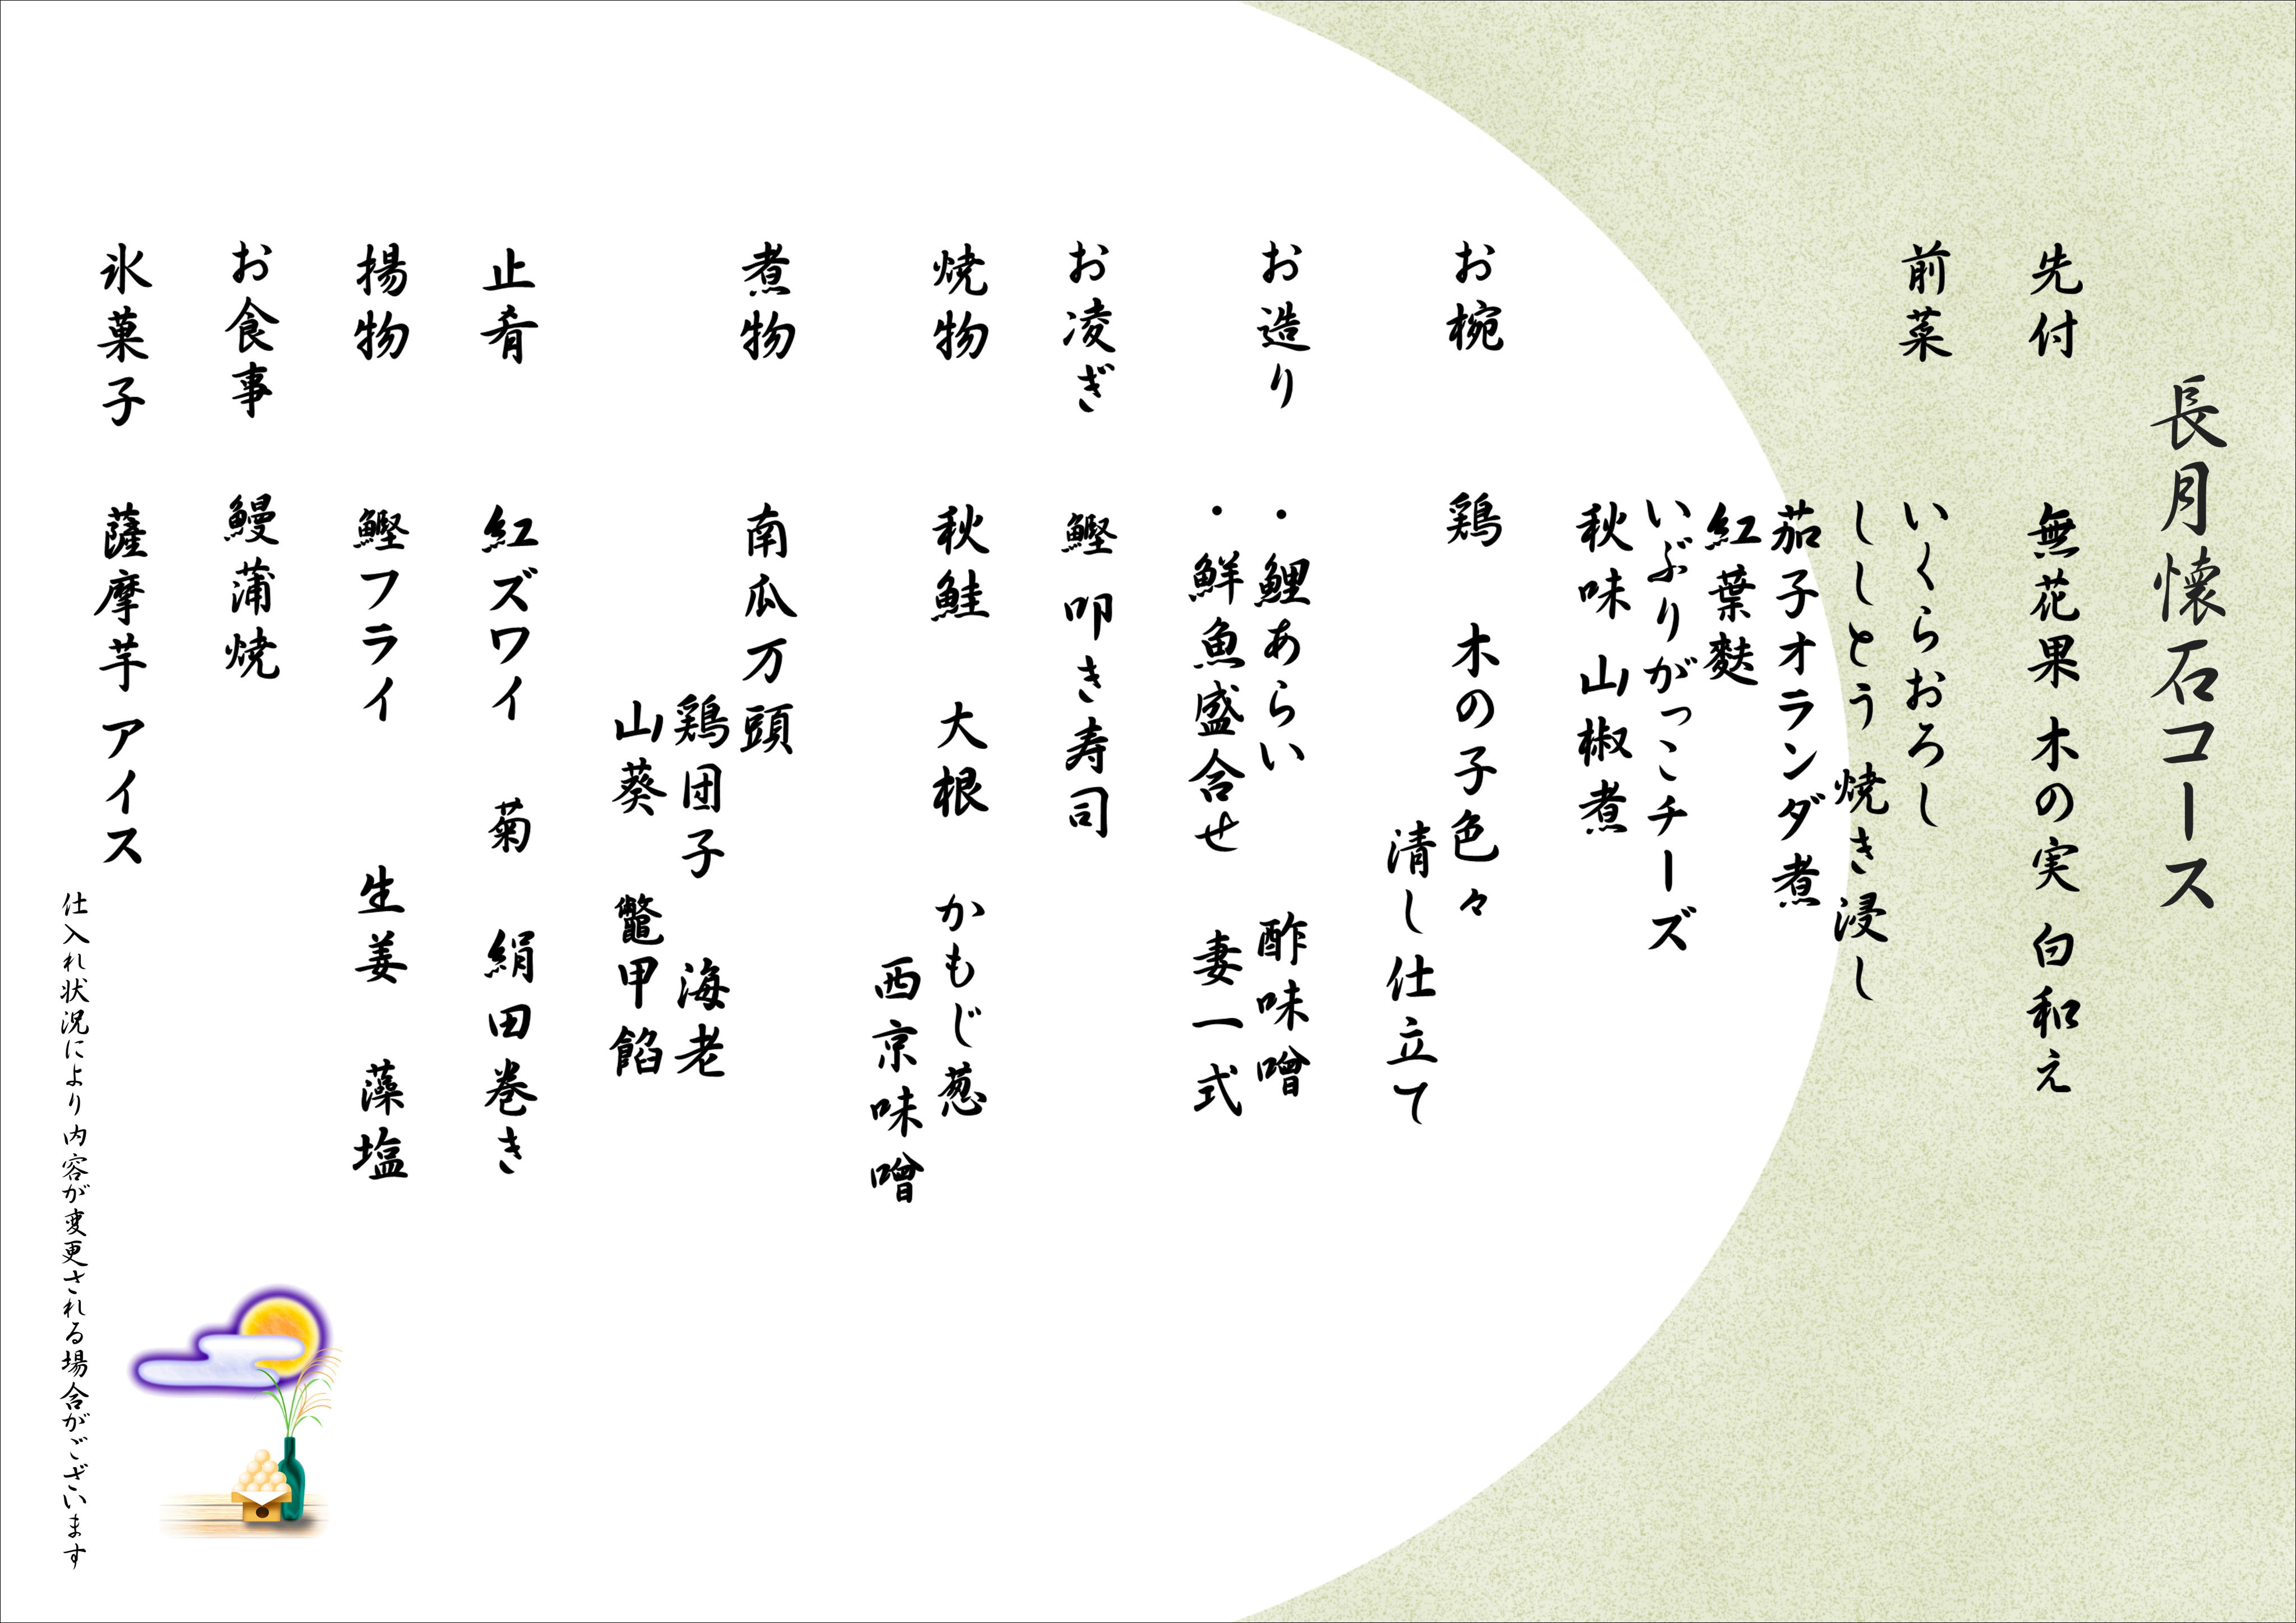 長月懐石コース
先付　無花果 木の実 白和え
前菜　いくらおろし
ししとう 焼き浸し
茄子オランダ煮
紅葉麩
いぶりがっこチーズ
秋味 山椒煮
お椀　鶏　木の子色々
清し仕立て
お造り　・鯉あらい　酢味噌
・鮮魚盛合せ　妻一式
お凌ぎ　鰹 叩き寿司
焼物　秋鮭　大根　かもじ葱
西京味噌
煮物　南瓜万頭
鶏団子　海老
山葵　鼈甲餡
止肴　紅ズワイ　菊　絹田巻き
揚物　鰹フライ　生姜　藻塩
お食事　鰻蒲焼
氷菓子　薩摩芋アイス
仕入れ状況により内容が変更される場合がございます